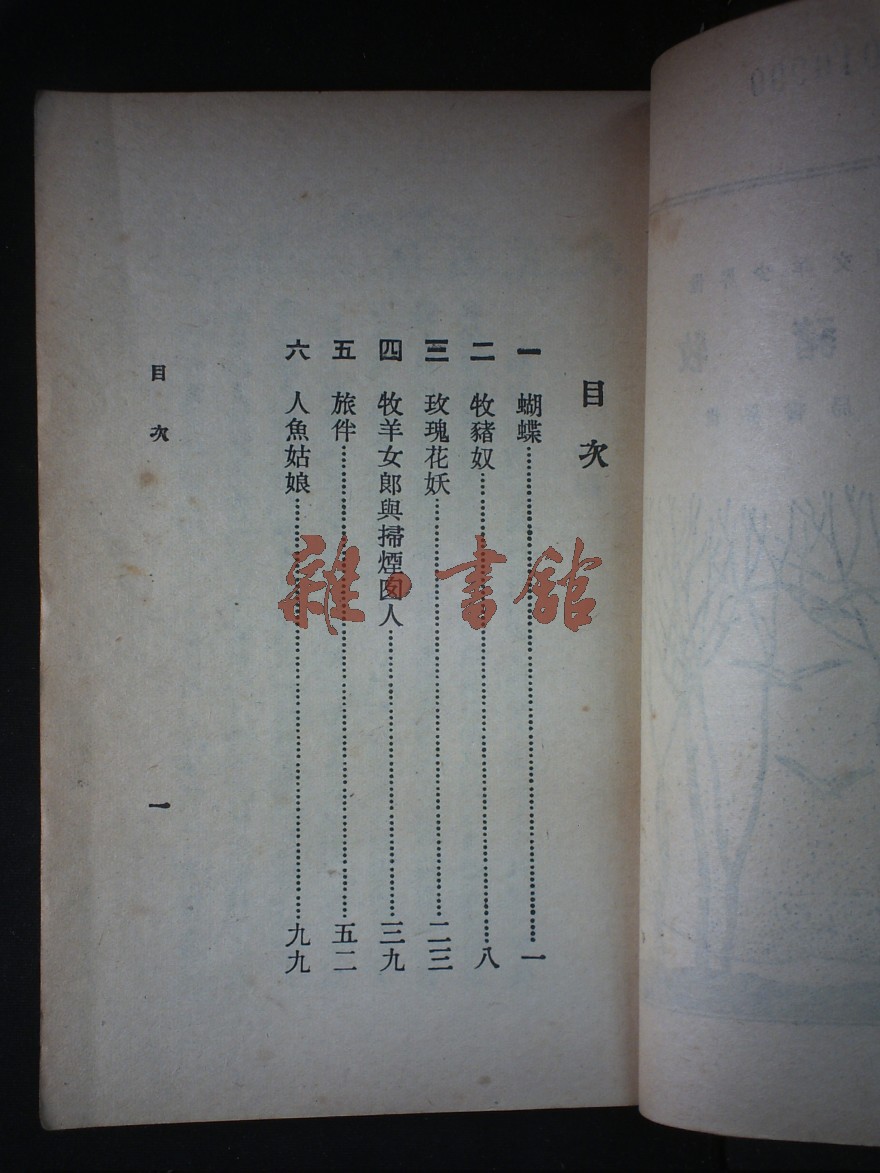 目次
一 蝴蝶……一
二 牧豬奴……八
三 玫瑰花妖……二三
四 牧羊女郎與掃煙囪人……三九
五 旅伴……五二
六 人魚姑娘……九九
目次
一
雜·書館